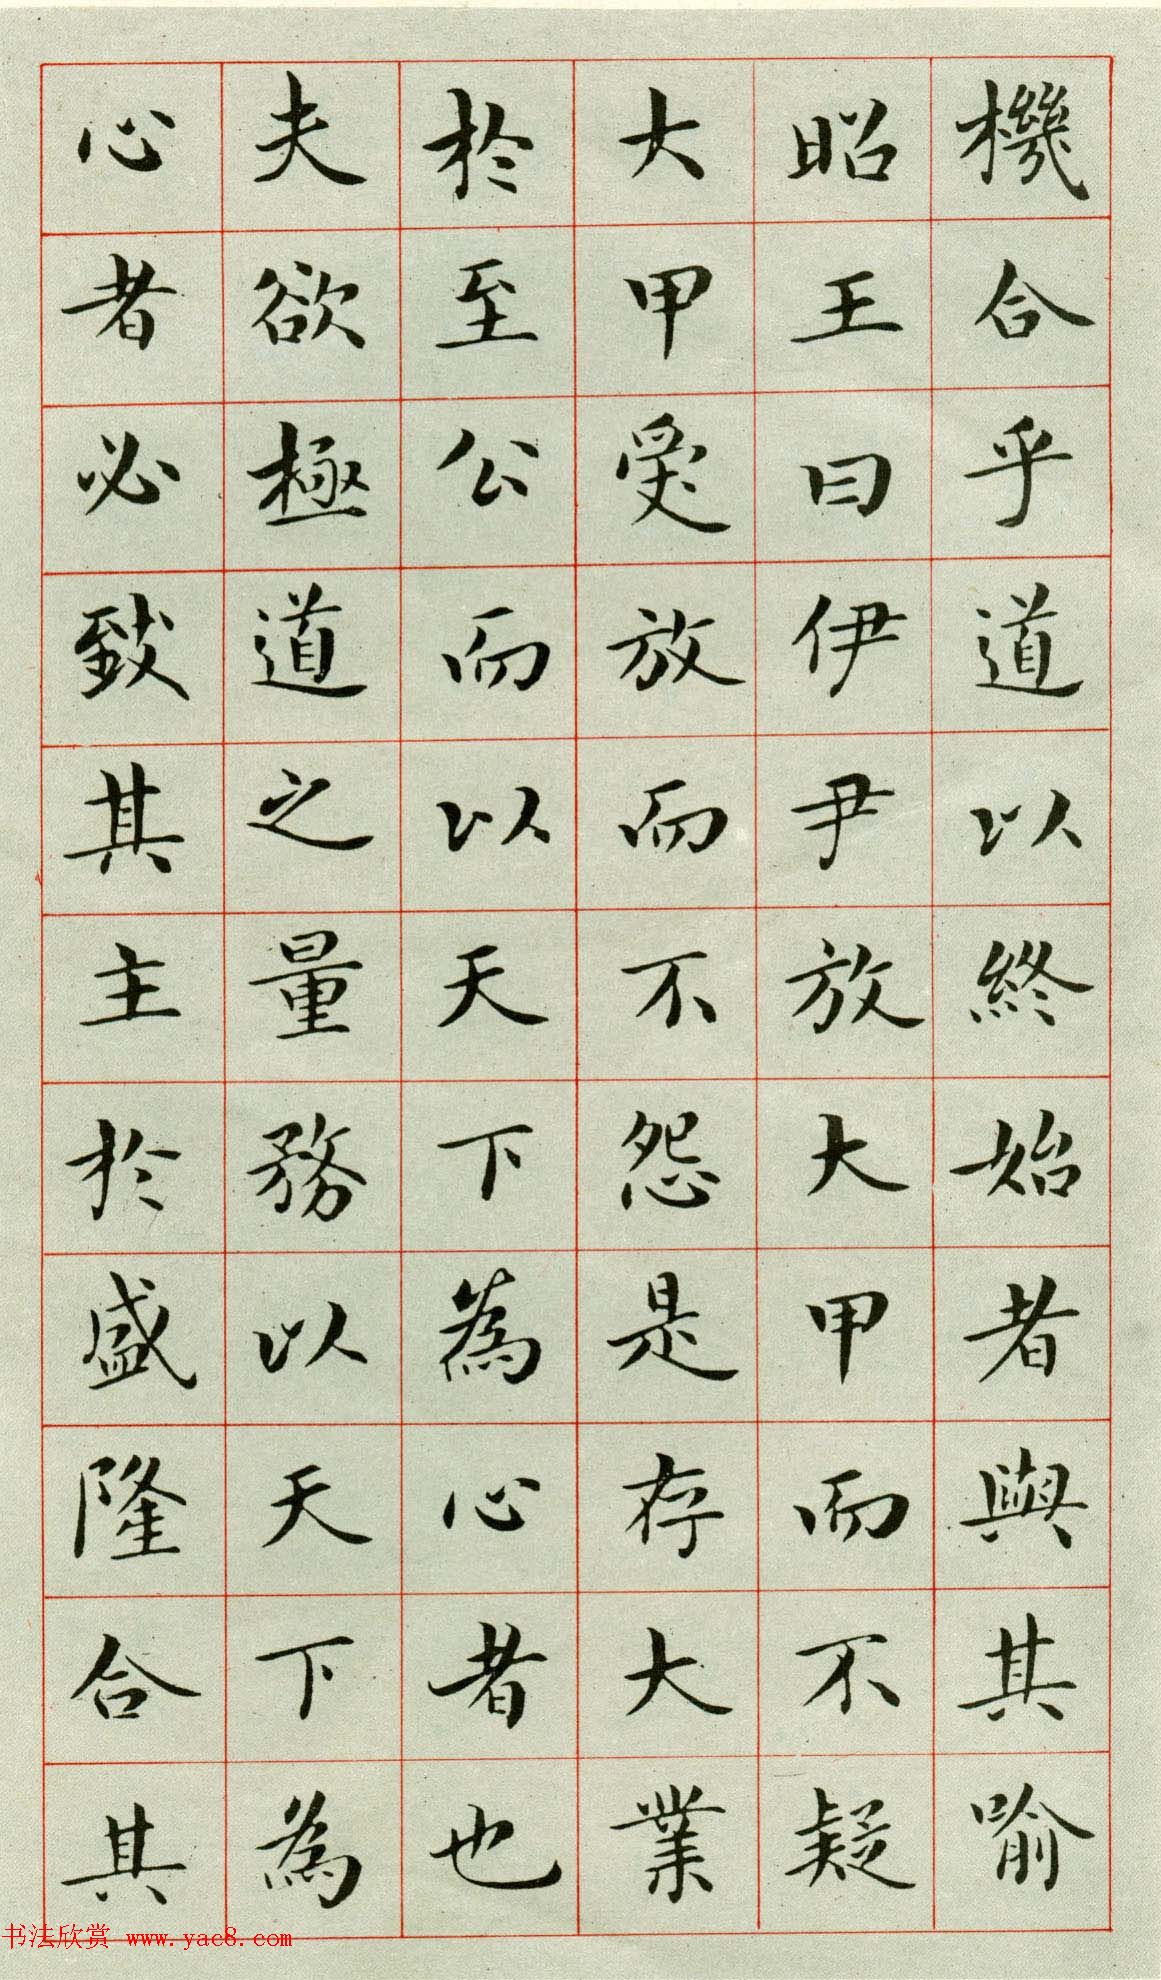 機合乎道以終始者與其喻
昭王曰伊尹放大甲而不疑
大甲受放而不怨是存大業
於至公而以天下為心者也
夫欲極道之量務以天下為
心者必致其主於盛隆合其
书法欣赏 www.yac8.com